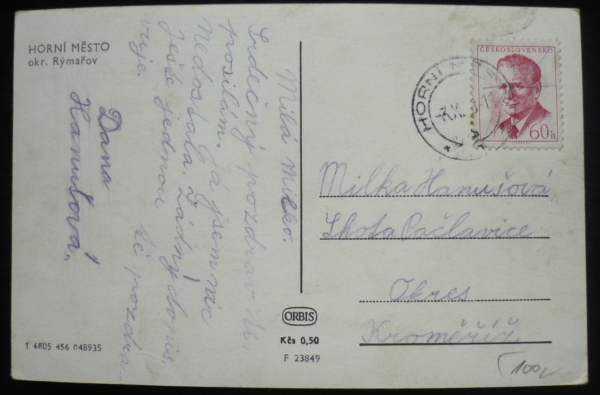 HORNÍ MĚSTO
okr. Rýmařov
Milá Milko.
Srdečný pozdrav ti
posílám. Já jsem nic
Nedostala Žádný dopis.
Ješte jednou tě pozdra
vuje
Dana
Hanušová.
1 6805 456 048935
ORBIS
Kčs 0,50
F 23849
ČESKOSLOVENSKO
60h
HORNÍ
Milka Hanušová
Lhota Pačlavice
Okres
Kroměříž
100,